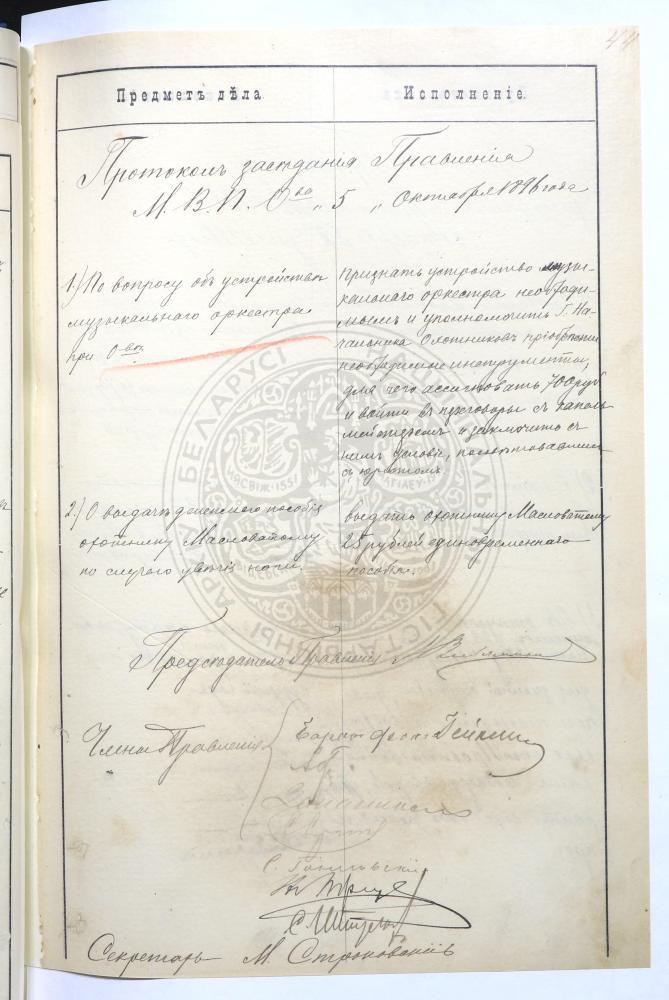 44
Предметъ дѣла.
Исполненіе.
Протоколъ засѣданія Правленія
М. В. П. О-ва „5„ Октября 1896 года
1) По вопросу объ устройствѣ
музыкальнаго оркестра
при О-вѣ.
признать устройство музы-
кальнаго оркестра необходи-
мымъ и уполномочить Г. На-
чальника Охотниковъ пріобрѣсти
необходимые инструменты,
для чего ассигновать 700 руб
и войти въ переговоры съ капель-
мейстеромъ и заключить съ
нимъ условіе, посовѣтовавшись
съ юристомъ.
2) О выдачѣ денежнаго пособія
охотнику Масловатому
по случаю увѣчія ноги.
выдать охотнику Масловатому
25 рублей единовременнаго
пособія.
Предсѣдатель Правленія
Члены Правленія
Баронъ фонъ
С.
С.
Секретарь М. Строковскій
БЕЛАРУСІ
НЯСВІЖ-1551